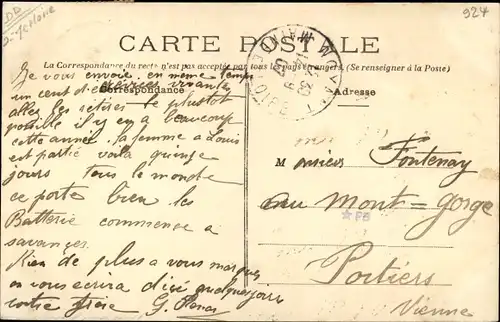 924
CARTE POSTALE
La Correspondance du recto n'est pas acceptée par tous les pays étrangers. (Se renseigner à la Poste)
Correspondance
Adresse
Je vous envoie en même temps
un cent d'écrevisses vivantes
allez les retirer le plus tot
possible il y en a beaucoup
cette année. la femme a Louis
est partie voila quinze
jours tous le monde
ce porte bien les
Batterie commence a
savances.
Rien de plus a vous marquer
on vous ecrira dici quelques jours
votre frère G.
Monsieur Fontenay
au Mont-gorge
PB
Poitiers
Vienne